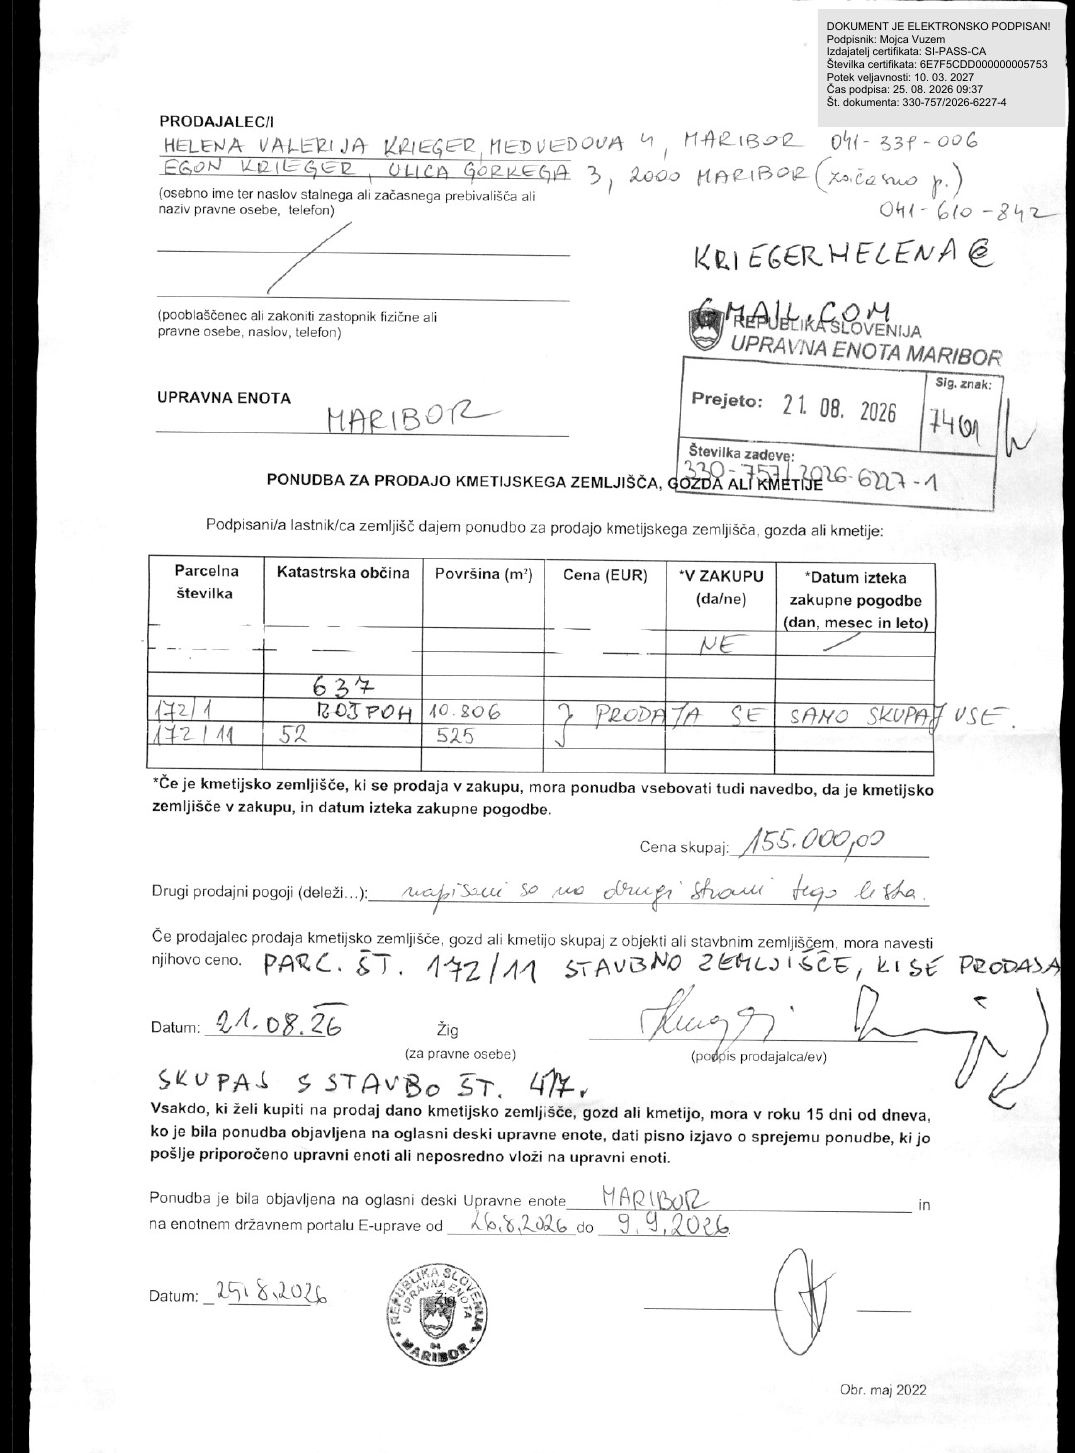 DOKUMENT JE ELEKTRONSKO PODPISAN!
Podpisnik: Mojca Vuzem
Izdajatelj certifikata: SI-PASS-CA
Številka certifikata: 6E7F5CDD000000005753
Potek veljavnosti: 10. 03. 2027
Čas podpisa: 25. 08. 2026 09:37
Št. dokumenta: 330-757/2026-6227-4
PRODAJALEC/I
HELENA VALERIJA KRIEGER, MEDVEDOVA 4, MARIBOR 041-339-006
EGON KRIEGER, ULICA GORKEGA 3, 2000 MARIBOR (začasno p.)
(osebno ime ter naslov stalnega ali začasnega prebivališča ali
naziv pravne osebe, telefon)
041-610-842
KRIEGERHELENA@
GMAIL.COM
(pooblaščenec ali zakoniti zastopnik fizične ali
pravne osebe, naslov, telefon)
REPUBLIKA SLOVENIJA
UPRAVNA ENOTA MARIBOR
Prejeto: 21. 08. 2026
Sig. znak:
7401
Številka zadeve:
330-757/2026-6227-1
UPRAVNA ENOTA
MARIBOR
PONUDBA ZA PRODAJO KMETIJSKEGA ZEMLJIŠČA, GOZDA ALI KMETIJE
Podpisani/a lastnik/ca zemljišč dajem ponudbo za prodajo kmetijskega zemljišča, gozda ali kmetije:
Parcelna številka Katastrska občina Površina (m²) Cena (EUR) *V ZAKUPU (da/ne) *Datum izteka zakupne pogodbe (dan, mesec in leto)
NE
637
172/1 ROŠPOH 10.806 } PRODAJA SE SAMO SKUPAJ VSE.
172/11 52 525
*Če je kmetijsko zemljišče, ki se prodaja v zakupu, mora ponudba vsebovati tudi navedbo, da je kmetijsko
zemljišče v zakupu, in datum izteka zakupne pogodbe.
Cena skupaj: 155.000,00
Drugi prodajni pogoji (deleži...): napisani so na drugi strani tega lista.
Če prodajalec prodaja kmetijsko zemljišče, gozd ali kmetijo skupaj z objekti ali stavbnim zemljiščem, mora navesti
njihovo ceno. PARC. ŠT. 172/11 STAVBNO ZEMLJIŠČE, KI SE PRODAJA
Datum: 21.08.26 Žig
(za pravne osebe) (podpis prodajalca/ev)
SKUPAJ S STAVBO ŠT. 417.
Vsakdo, ki želi kupiti na prodaj dano kmetijsko zemljišče, gozd ali kmetijo, mora v roku 15 dni od dneva,
ko je bila ponudba objavljena na oglasni deski upravne enote, dati pisno izjavo o sprejemu ponudbe, ki jo
pošlje priporočeno upravni enoti ali neposredno vloži na upravni enoti.
Ponudba je bila objavljena na oglasni deski Upravne enote MARIBOR in
na enotnem državnem portalu E-uprave od 26.8.2026 do 9.9.2026
Datum: 25.8.2026
REPUBLIKA SLOVENIJA
UPRAVNA ENOTA
Žig
MARIBOR
Obr. maj 2022